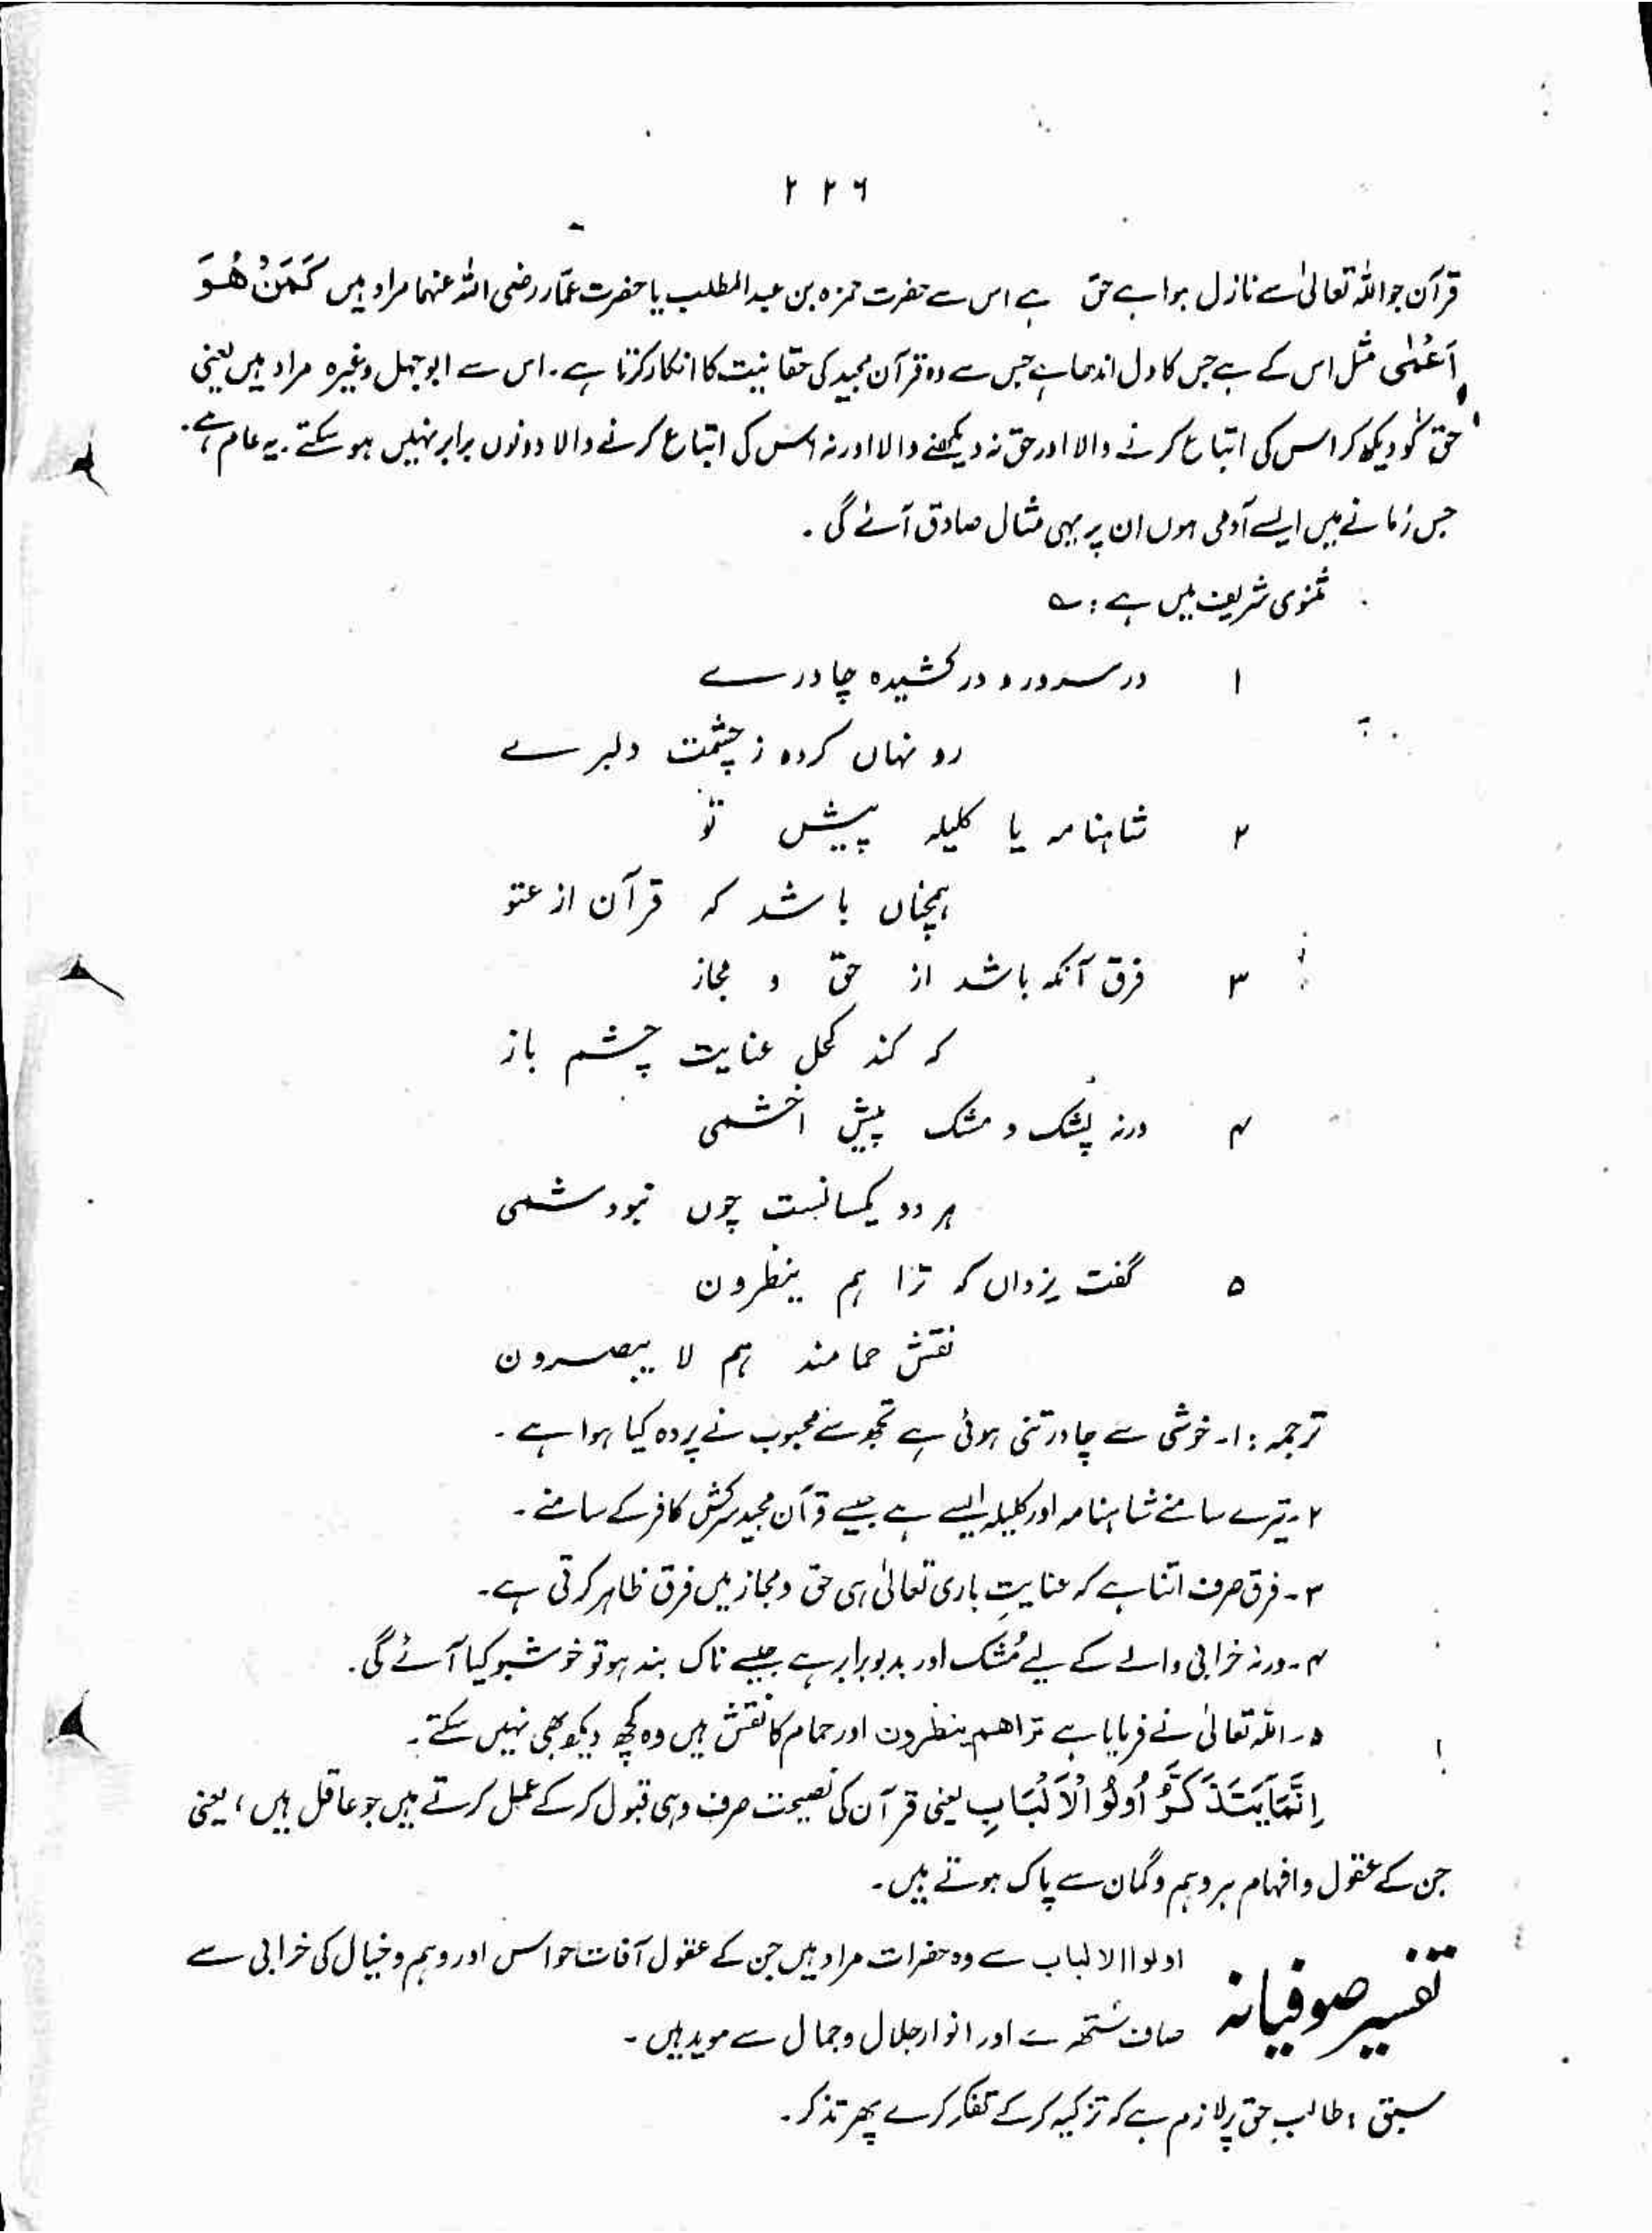 ۲۲۶
قرآن جو اللہ تعالیٰ سے نازل ہوا ہے حق ہے اس سے حضرت حمزہ بن عبدالمطلب یا حضرت عمّار رضی اللہ عنہما مراد ہیں كَمَنْ هُوَ
اَعْمٰى مثل اس کے ہے جس کا دل اندھا ہے جس سے وہ قرآن مجید کی حقانیت کا انکار کرتا ہے۔ اس سے ابوجہل وغیرہ مراد ہیں یعنی
حق کو دیکھ کر اس کی اتباع کرنے والا اور حق نہ دیکھنے والا اور نہ اس کی اتباع کرنے والا دونوں برابر نہیں ہو سکتے۔ یہ عام ہے۔
جس زمانے میں ایسے آدمی ہوں ان پر یہی مثال صادق آئے گی۔
مثنوی شریف میں ہے: ؎
۱ در سرور و در کشیدہ چادرے
رو نہاں کردہ ز چشمت دلبرے
۲ شاہنامہ یا کلیلہ پیش تو
ہمچناں باشد کہ قرآن از عتو
۳ فرق آنکہ باشد از حق و مجاز
کہ کند کحل عنایت چشم باز
۴ ورنہ پشک و مشک پیش اخشمی
ہر دو یکسانست چوں نبود شمی
۵ گفت یزداں کہ ترٰا ہم ینظرون
نقش حمامند ہم لا یبصرون
ترجمہ: ۱۔ خوشی سے چادر تنی ہوئی ہے تجھ سے محبوب نے پردہ کیا ہوا ہے۔
۲۔ تیرے سامنے شاہنامہ اور کلیلہ ایسے ہے جیسے قرآن مجید سرکش کافر کے سامنے۔
۳۔ فرق صرف اتنا ہے کہ عنایتِ باری تعالیٰ ہی حق و مجاز میں فرق ظاہر کرتی ہے۔
۴۔ ورنہ خرابی والے کے لیے مُشک اور بدبو برابر ہے جیسے ناک بند ہو تو خوشبو کیا آئے گی۔
۵۔ اللہ تعالیٰ نے فرمایا ہے تراھم ینظرون اور حمام کا نقش ہیں وہ کچھ دیکھ بھی نہیں سکتے۔
اِنَّمَا يَتَذَكَّرُ اُولُوا الْاَلْبَابِ یعنی قرآن کی نصیحت صرف وہی قبول کرکے عمل کرتے ہیں جو عاقل ہیں، یعنی
جن کے عقول و افہام ہر وہم و گمان سے پاک ہوتے ہیں۔
تفسیر صوفیانہ اولوا الالباب سے وہ حضرات مراد ہیں جن کے عقول آفات حواس اور وہم و خیال کی خرابی سے
صاف ستھرے اور انوار جلال و جمال سے موید ہیں۔
سبق: طالب حق پر لازم ہے کہ تزکیہ کرکے تفکر کرے پھر تذکر۔